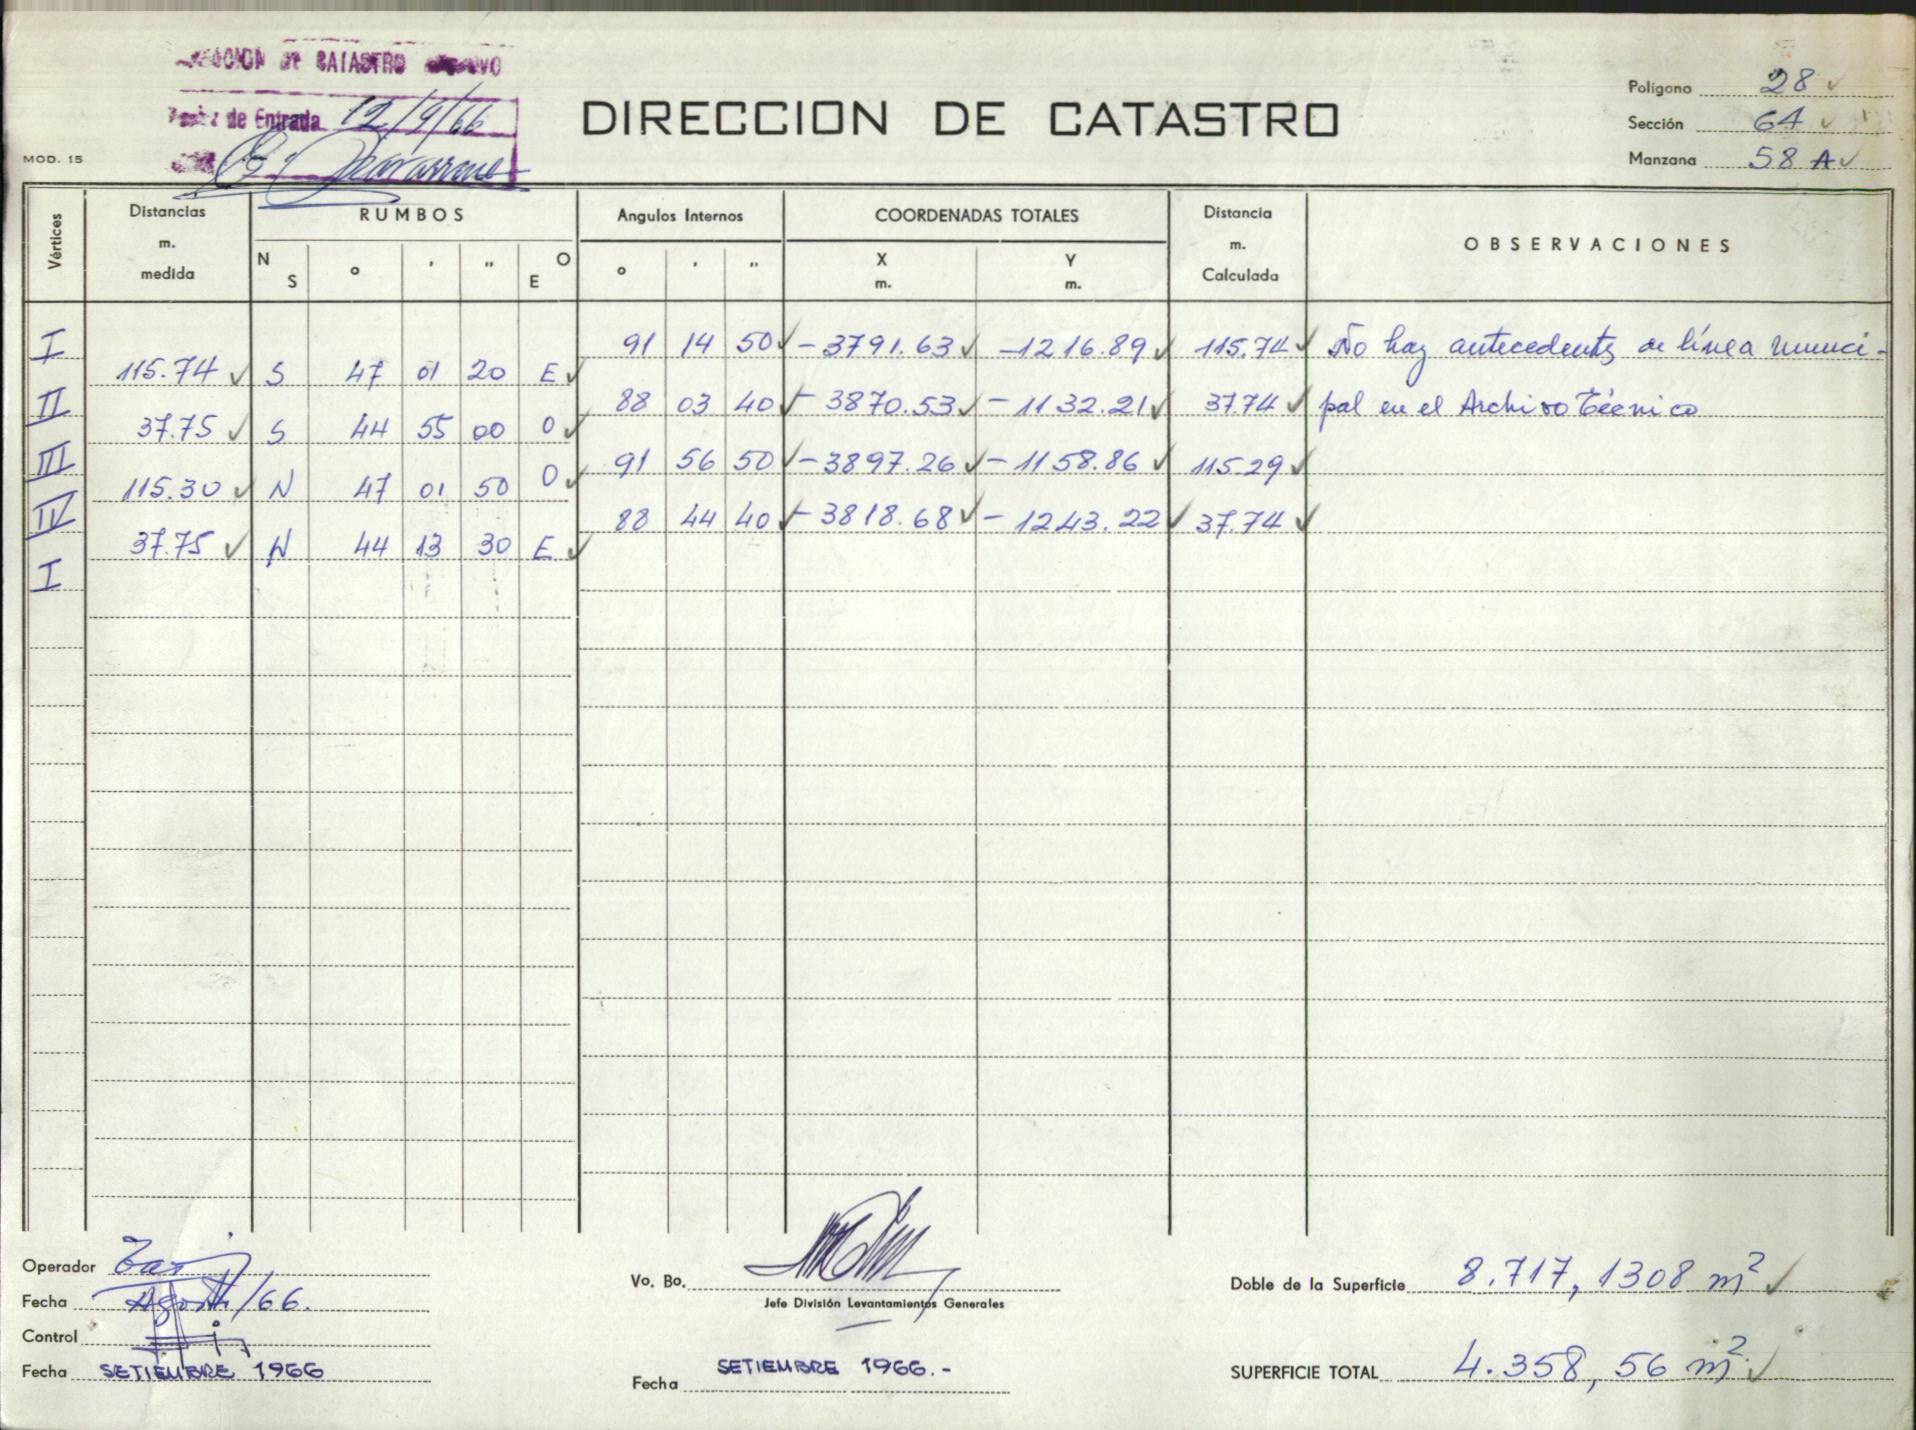 CATASTRO
de Entrada 12/9/66
DIRECCION DE CATASTRO
MOD. 15
Polígono 28 ✓
Sección 64 ✓
Manzana 58 A ✓
Vértices
Distancias m. medida
RUMBOS
N S ° ' " O E
Angulos Internos
° ' "
COORDENADAS TOTALES
X m. Y m.
Distancia m. Calculada
OBSERVACIONES
I 91 14 50 ✓ -3791.63 ✓ -1216.89 ✓ 115.74 ✓ No hay antecedentes de línea munici-
115.74 ✓ S 47 01 20 E ✓
II 88 03 40 ✓ -3870.53 ✓ -1132.21 ✓ 37.74 ✓ pal en el Archivo Técnico
37.75 ✓ S 44 55 00 O ✓
III 91 56 50 ✓ -3897.26 ✓ -1158.86 ✓ 115.29 ✓
115.30 ✓ N 47 01 50 O ✓
IV 88 44 40 ✓ -3818.68 ✓ -1243.22 ✓ 37.74 ✓
37.75 ✓ N 44 13 30 E ✓
I
Operador
Fecha Agosto/66.
Control
Fecha SETIEMBRE 1966
Vo. Bo.
Jefe División Levantamientos Generales
Fecha SETIEMBRE 1966.-
Doble de la Superficie 8.717,1308 m² ✓
SUPERFICIE TOTAL 4.358,56 m² ✓